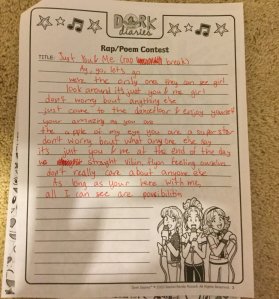 DORK
diaries
Rap/Poem Contest
TITLE: Just You & Me (rap break)
Ay, yo, lets go
we're the only ones they can see girl
look around it's just you & me girl
don't worry bout anything else
just come to the dancefloor & enjoy yourself
your amazing as you are
the apple of my eye you are a superstar
don't worry bout what anyone else say
it's just you & me at the end of the day
straight vibin, flyin feeling ourselves
don't really care about anyone else
As long as your here with me,
all I can see are possibilities